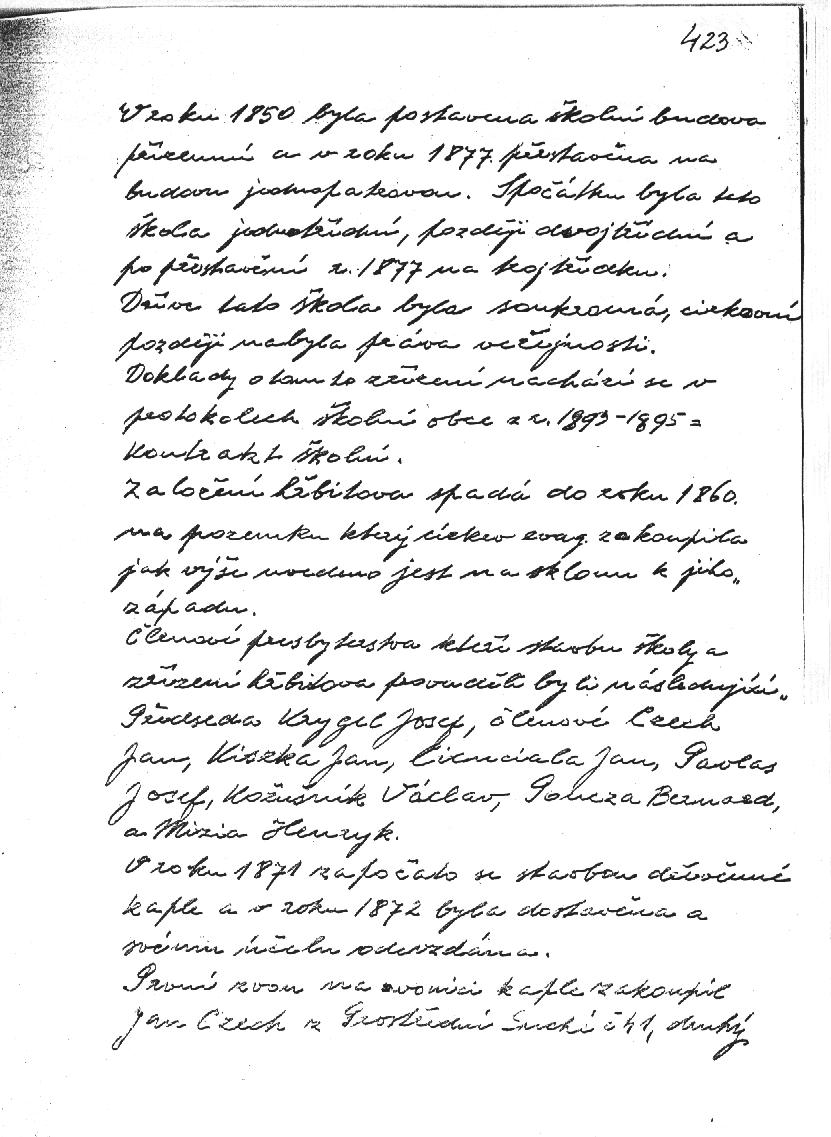 423
V roku 1850 byla postavena školní budova
přízemní a v roku 1877 přestavěna na
budovu jednopatrovou. Spočátku byla tato
škola jednotřídní, později dvojtřídní a
po přestavění r. 1877 na trojtřídku.
Dříve tato škola byla soukromá, církevní
později nabyla práva veřejnosti.
Doklady o tomto zřízení nachází se v
protokolech školní obce z r. 1893-1895 =
Kontrakt školní.
Založení hřbitova spadá do roku 1860.
na pozemku který církev evag. zakoupila
jak výše uvedeno jest na sklonu k jiho„
západu.
Členové presbyterstva kteří stavbu školy a
zřízení hřbitova provaděli byli následující„
Předseda Krygel Josef, členové Czech
Jan, Kiszka Jan, Licnciala Jan, Pavlas
Josef, Kožušník Václav, Poncza Bernard,
a Mizia Henryk.
V roku 1871 započato se stavbou děkovinné
kaple a v roku 1872 byla dostavěna a
svému účelu odevzdána.
První zvon na zvonici kaple zakoupil
Jan Czech z Prostřední Suché č 41, druhý